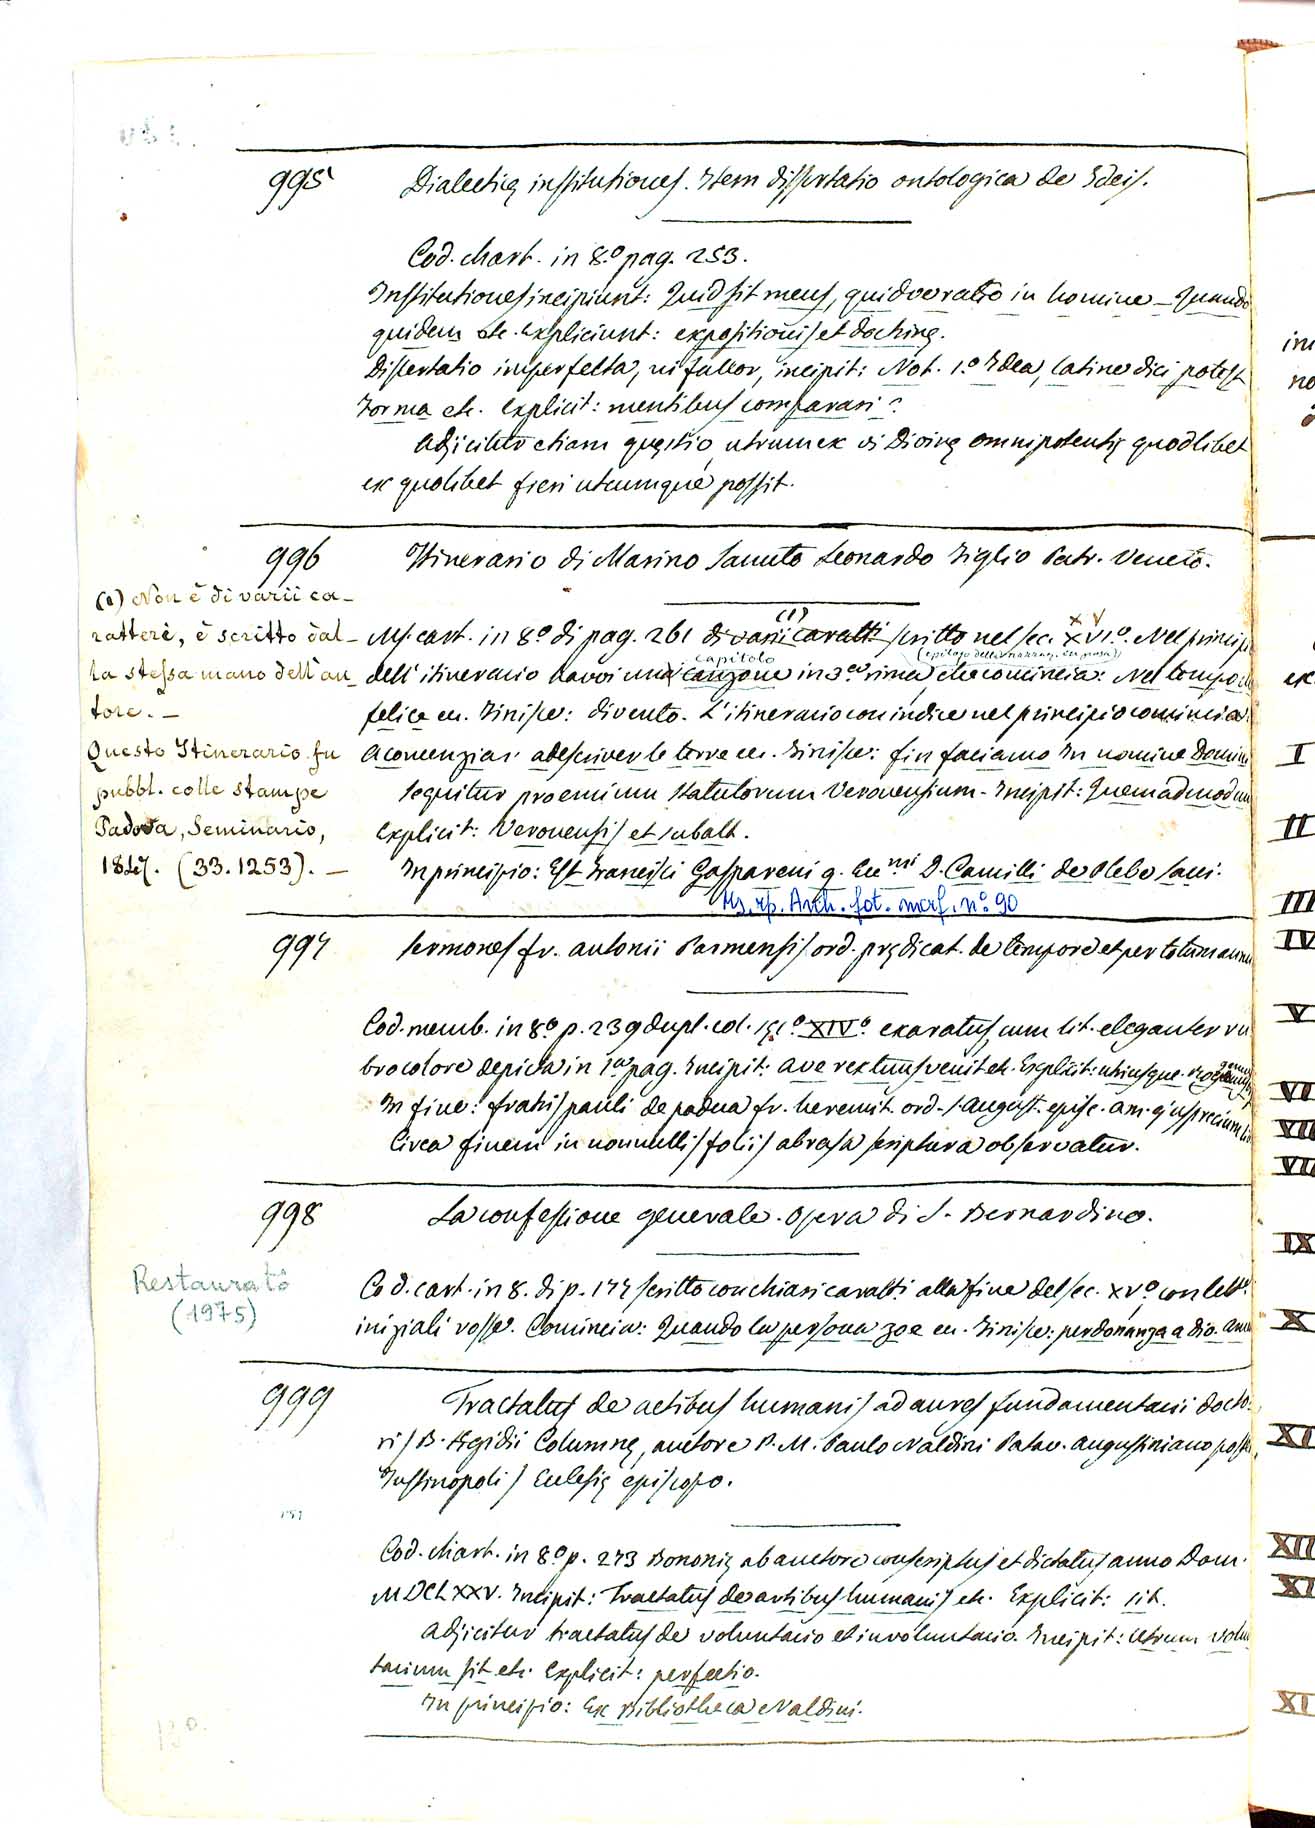 995
Dialecticę institutiones. Item dissertatio ontologica de Ideis.
Cod. chart. in 8.º pag. 253.
Institutiones incipiunt: Quid sit mens, quidve ratio in homine – Quando
quidem etc. Expliciunt: expositionis et doctrinę.
Dissertatio imperfecta, ni fallor, incipit: Not. 1.º Idea, latine dici potest
Forma etc. Explicit: mentibus comparari?
Adjicitur etiam quęstio, utrum ex vi Divinę omnipotentię quodlibet
ex quolibet fieri utcumque possit.
996
Itinerario di Marino Sanuto Leonardo Figlio Patr. Veneto.
(1) Non è di varii ca-
ratteri, è scritto dal-
la stessa mano dell'au-
tore. –
Questo Itinerario fu
pubbl. colle stampe
Padova, Seminario,
1847. (33.1253). –
(1)
Ms. cart. in 8º di pag. 261 di varii caratti scritto nel sec. XVI.º Nel princip
XV
capitolo
dell'itinerario havvi una canzone in 3.za rima che comincia: Nel tempo
felice ec. Finisce: divento. L'itinerario con indice nel principio comincia:
A comenziar a descriver le terre ec. Finisce: fin faciamo In nomine Domini
Sequitur proemium Statutorum Veronensium – Incipit: Quemadmodum
Explicit: Veronensis et subalt.
In principio: Est Francisci Gaspareni q. Ecc.mi D. Camilli de Plebe Sacci.
Ms. rip. Arch. fot. marf. nº 90
997
Sermones fr. Antonii Parmensis ord. prędicat. de tempore et per totum annu
Cod. memb. in 8º p. 239 dupl. col. sęc.º XIVº exaratus, cum lit. eleganter ru
bro colore depicta in 1.a pag. Incipit: Ave rex tuus venit etc. Explicit: utriusque
In fine: fratris pauli de padua fr. heremit. ord. s. August. episc.
Circa finem in nonnullis foliis abrasa scriptura observatur.
998
La confessione generale. Opera di S. Bernardino.
Restaurato
(1975)
Cod. cart. in 8. di p. 177 scritto con chiari caratti alla fine del sec. XVº con lett.
iniziali rosse. Comincia: Quando la persona zoe ec. Finisce: perdonanza a dio. ame
999
Tractatus de actibus humanis ad aures fundamentarii docto-
ris B. Ægidii Columnę, auctore P. M. Paulo Naldini Patav. Augustiniano post
Justinopolis Eclesię episcopo.
Cod. chart. in 8º p. 273 Bononię ab auctore conscriptus et dictatus anno Dom.
MDCLXXV. Incipit: Tractatus de actibus humanis etc. Explicit: sit.
Adjicitur tractatus de voluntario et involuntario. Incipit: Utrum volun
tarium sit etc. Explicit: perfectio.
In principio: Ex Bibliotheca Naldini.
I
II
III
IV
V
VI
VII
IX
X
XI
XII